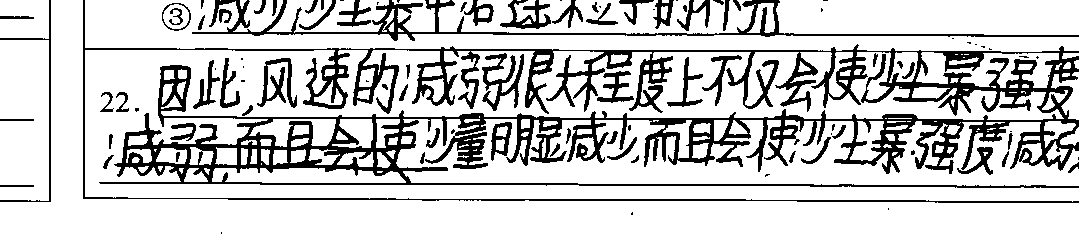 ③减少沙尘暴中沿途粒子的补充
22. 因此,风速的减弱很大程度上不仅会使沙尘暴强度
减弱,而且会使沙量明显减少,而且会使沙尘暴强度减弱